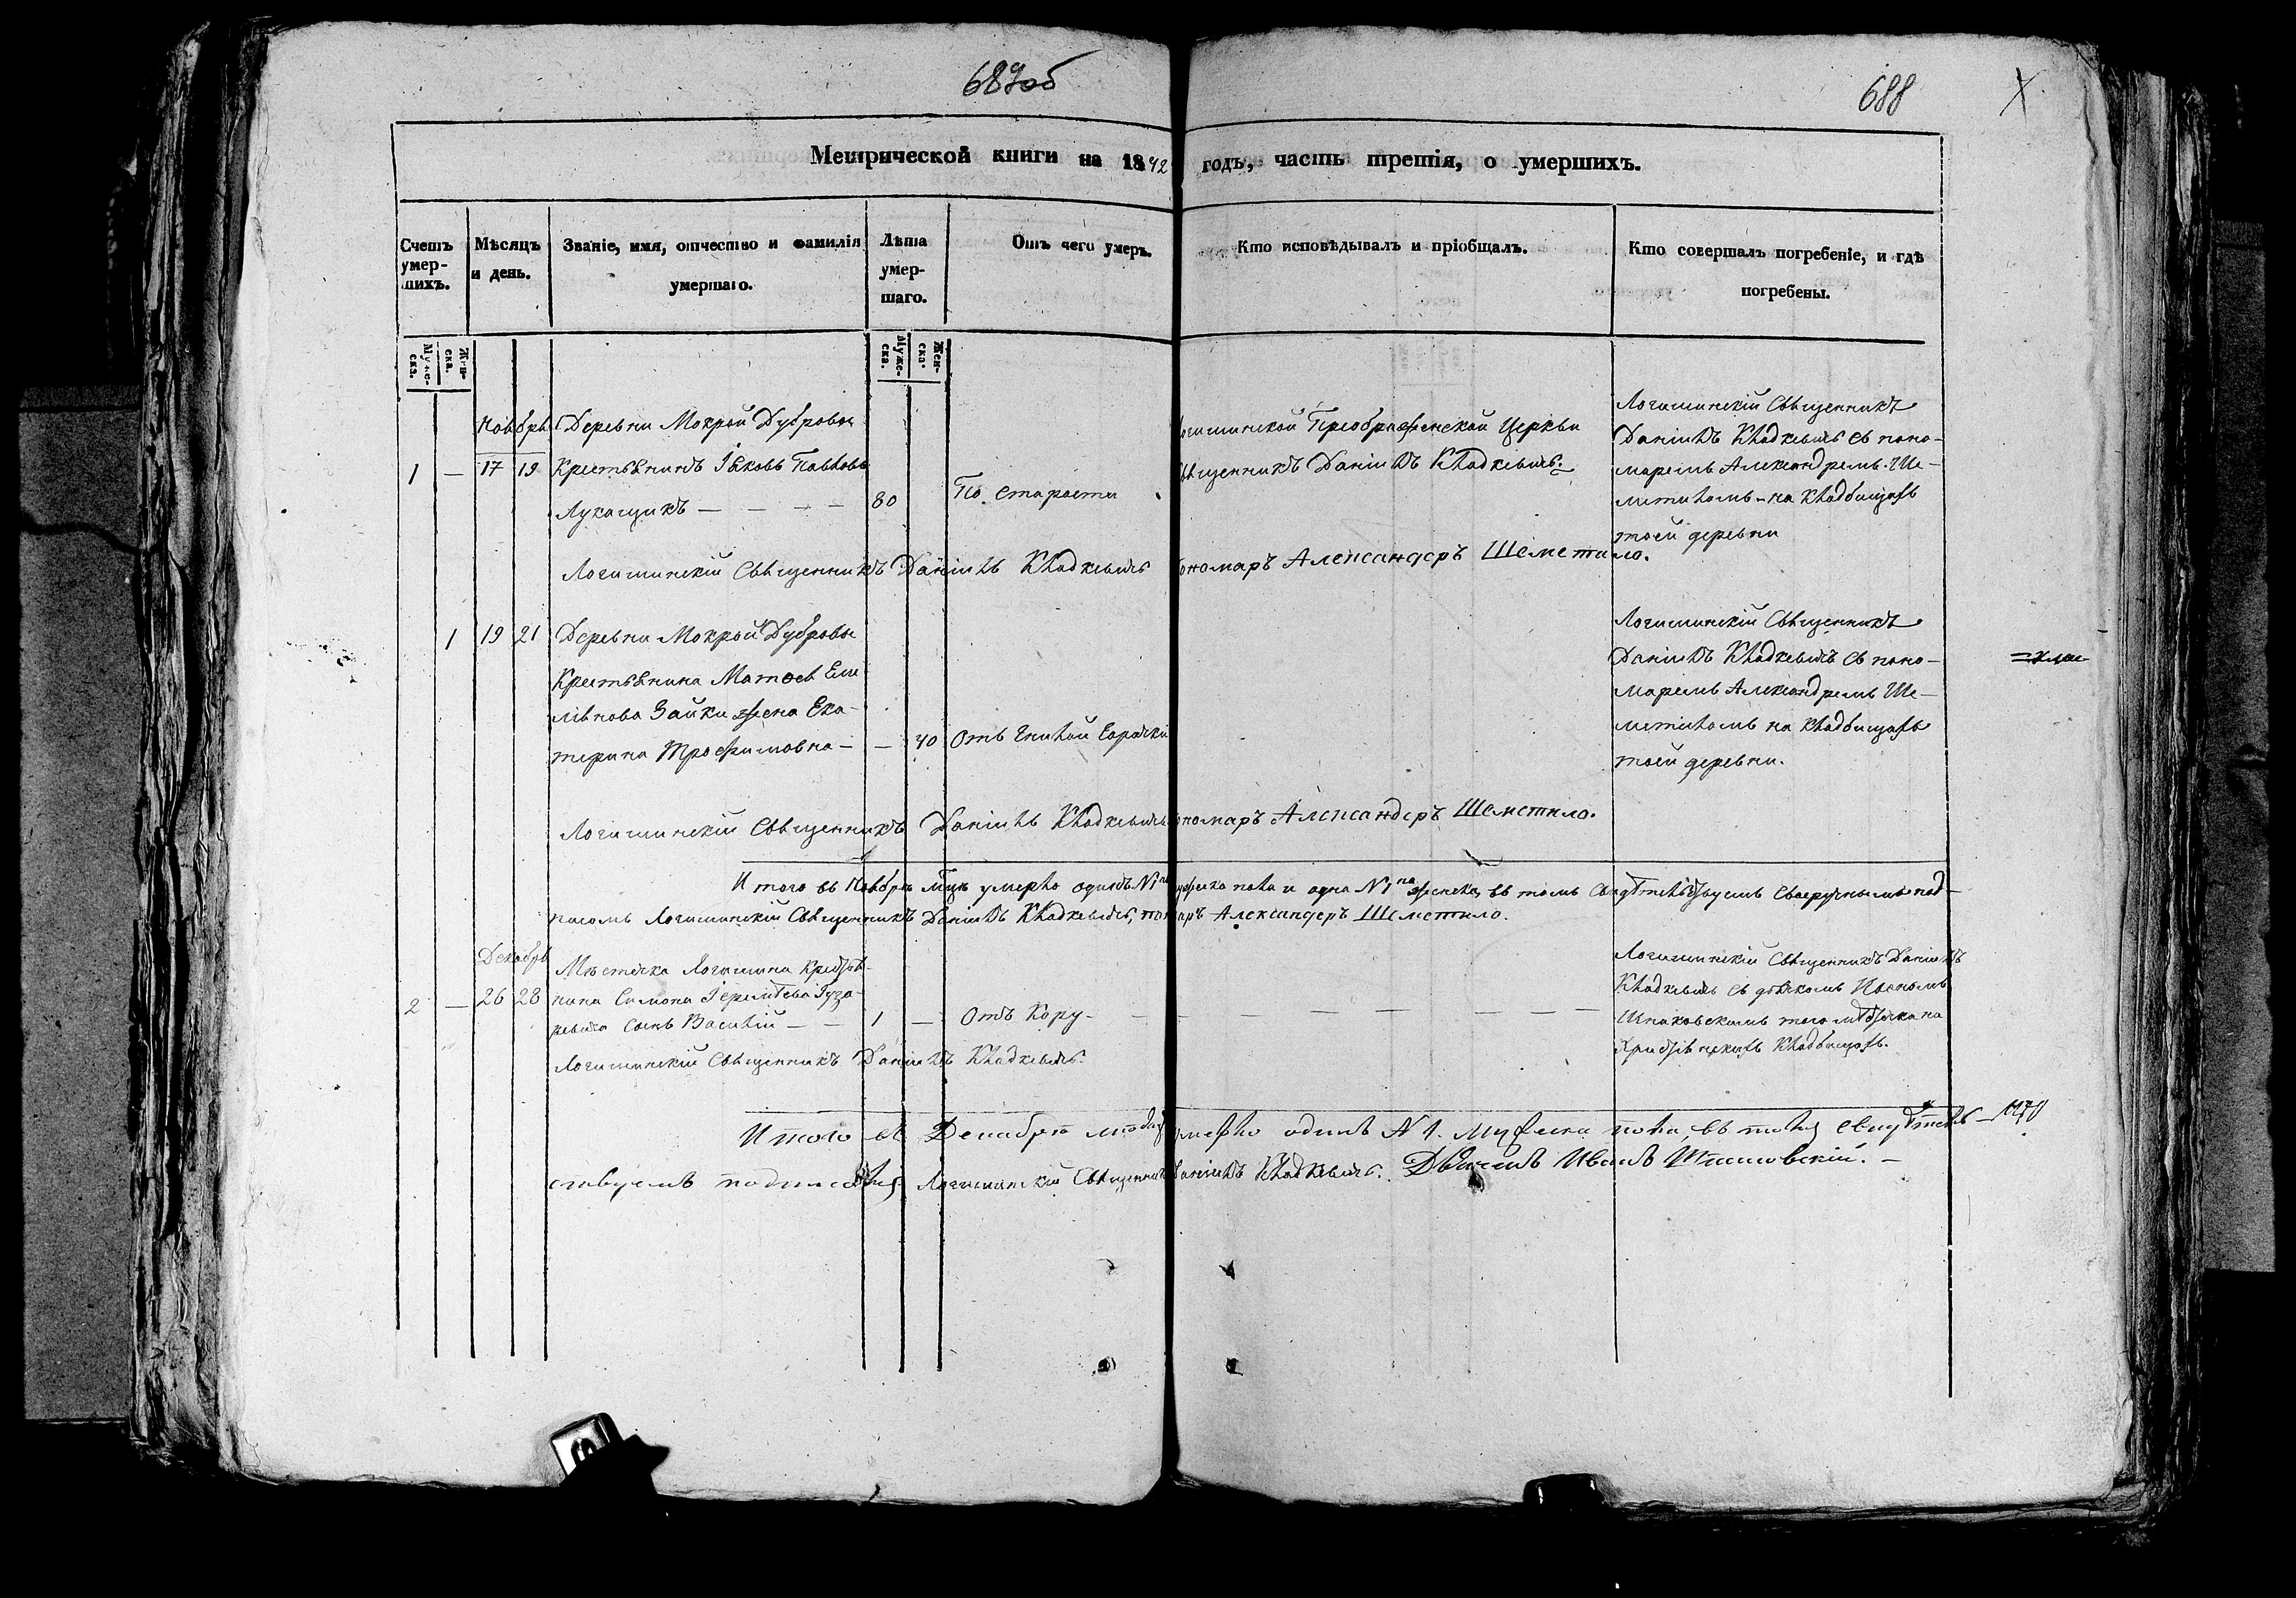 687об
688
Метрической книги на 1842 годъ, часть третія, о умершихъ.
Счетъ умер-шихъ.
Мѣсяцъ и день.
Званіе, имя, отчество и фамилія умершаго.
Лѣта умер-шаго.
Отъ чего умеръ.
Кто исповѣдывалъ и пріобщалъ.
Кто совершалъ погребеніе, и гдѣ погребены.
Муже-ска.
Жен-ска.
Муже-ска.
Жен-ска.
Ноябрь
1 — 17 19
Деревни Мокрой Дубровы
Крестьянинъ Іаковъ Павловъ
Лукащикъ — — — —
80
По старости
Логишинской Преображенской Церкви
Священникъ Даніилъ Кладкевичъ.
Логишинскій Священникъ
Даніилъ Кладкевичъ съ поно-
маремъ Александремъ Ше-
метиломъ на кладбищахъ
тоей деревни
Логишинскій Священникъ Даніилъ Кладкевичъ пономаръ Александеръ Шеметило.
1 19 21
Деревни Мокрой Дубровы
Крестьянина Матѳея Еме-
ліянова Зайки жена Ека-
терина Трофимовна —
— 40
Отъ Гнилой Горячки
Логишинскій Священникъ
Даніилъ Кладкевичъ съ поно-
маремъ Александремъ Ше-
метиломъ на кладбищахъ
тоей деревни.
Логишинскій Священникъ Даніилъ Кладкевичъ пономаръ Александеръ Шеметило.
Итого въ Ноябрѣ мцѣ умерло одинъ N 1 мужеска пола и одна N 1 женска, въ томъ свидѣтельствуемъ своеручнымъ под-
писомъ Логишинскій Священникъ Даніилъ Кладкевичъ, пономаръ Александеръ Шеметило.
Декабрь
2 — 26 28
Мѣстечка Логишина Крестья-
нина Симона Іереміева Гуза-
ревича сынъ Василій — —
1 —
Отъ Кору — — — — — — — —
Логишинскій Священникъ Даніилъ
Кладкевичъ съ дьячкомъ Иваномъ
Шпаковскимъ того мѣстечка на
Христіянскихъ кладбищахъ.
Логишинскій Священникъ Даніилъ Кладкевичъ.
Итого въ Декабрѣ мѣсяцѣ умерло одинъ N 1. мужеска пола, въ томъ свидѣтель-
ствуемъ подписомъ Логишинскій Священникъ Даніилъ Кладкевичъ. Дьячекъ Иванъ Шпаковскій. —